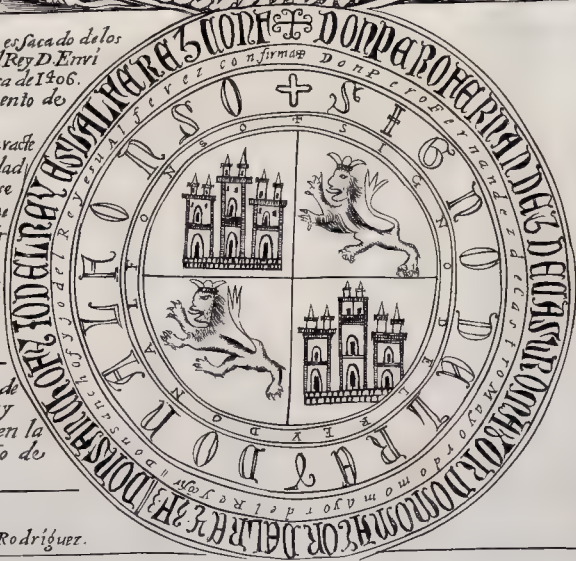 es sacado de los
Rey D. Enri
ra de 1406.
ento de
racte
dad
se
de
y
en la
o de
Rodríguez.
DON PERO HERNANDEZ DE CASTRO MAYOR DOMO MAYOR DEL REY DON SANCHO FIJO DEL REY E SU ALFEREZ CONF
Don Pero Fernandez de Castro Mayordomo mayor del Rey Don Sancho fijo del Rey e su Alferez confirma
+ SIGNO DEL REY DON ALFONSO
+ SIGNO DEL REY DON ALFONSO